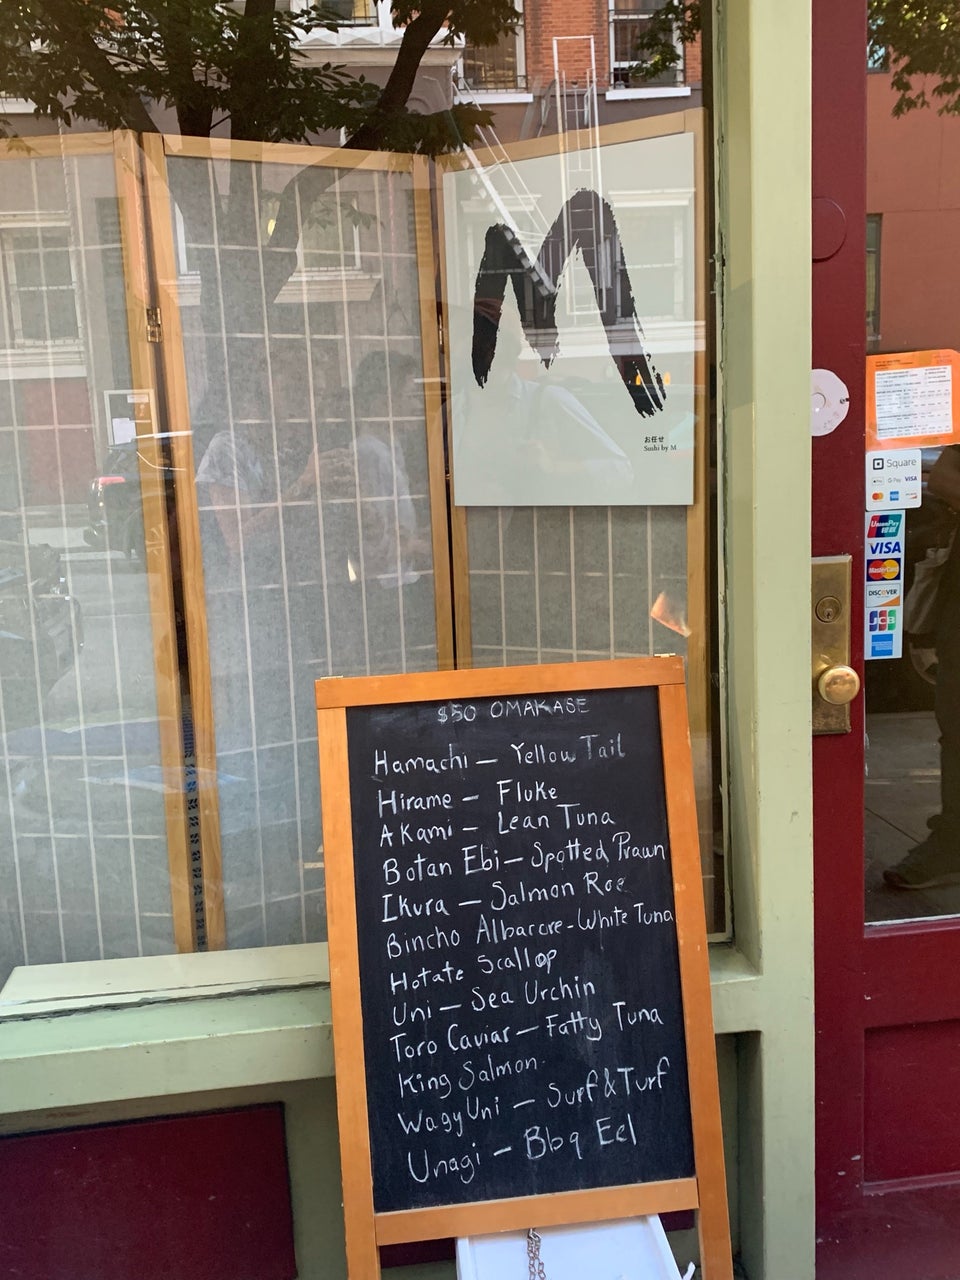 M
お任せ
Sushi by M
Square
Pay G Pay VISA
UnionPay
VISA
MasterCard
DISCOVER
JCB
$50 OMAKASE
Hamachi – Yellow Tail
Hirame – Fluke
Akami – Lean Tuna
Botan Ebi – Spotted Prawn
Ikura – Salmon Roe
Bincho Albacore - White Tuna
Hotate Scallop
Uni – Sea Urchin
Toro Caviar – Fatty Tuna
King Salmon
WagyUni – Surf & Turf
Unagi – Bbq Eel